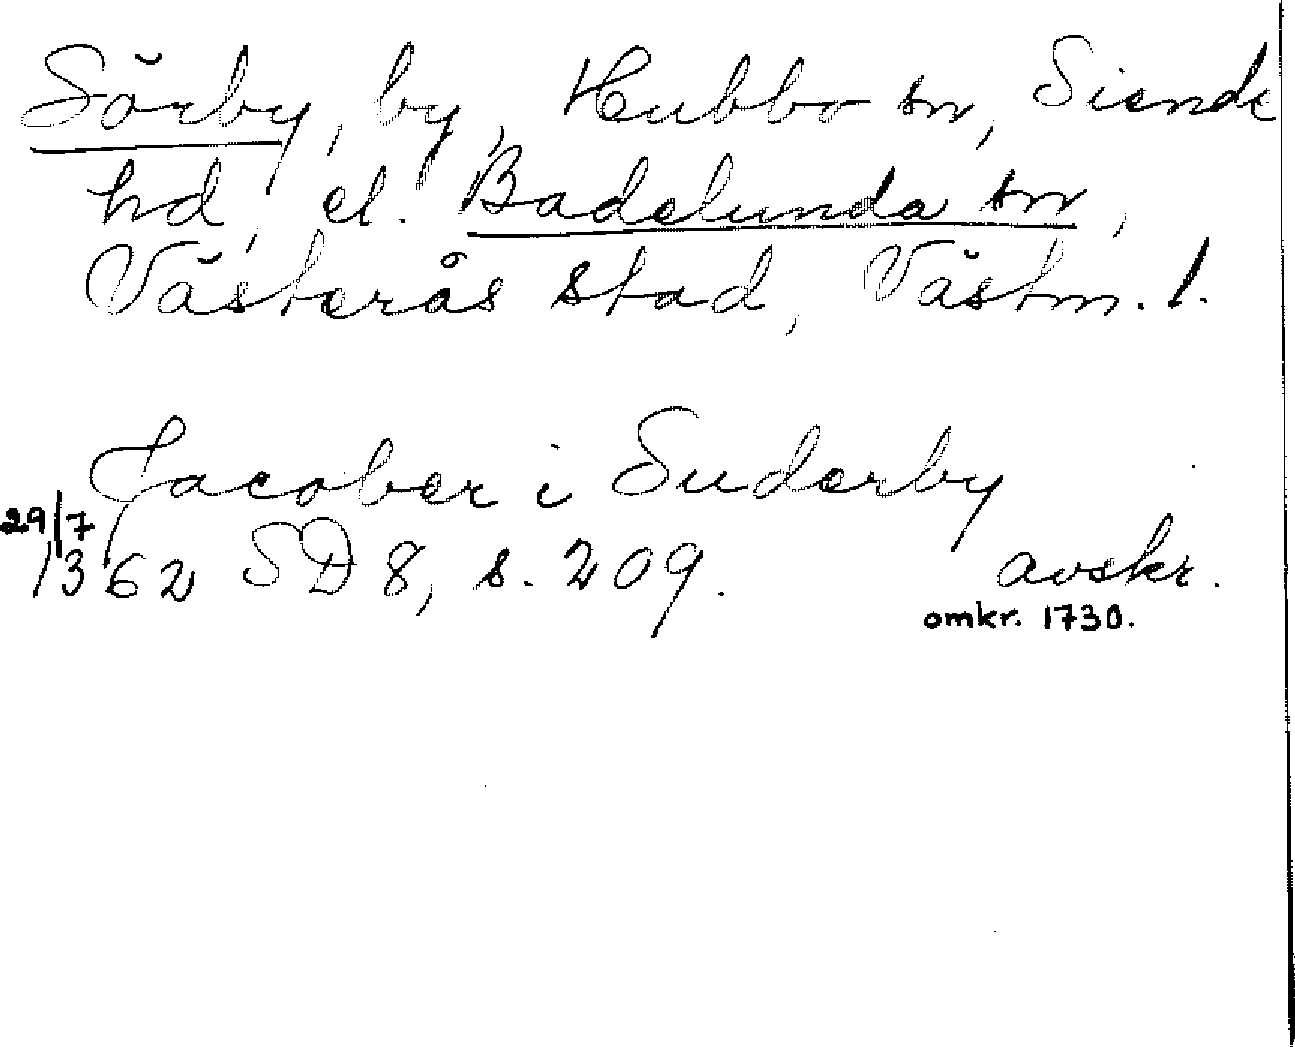 Sörby, by, Hubbo sn, Siende
hd, el. Badelunda sn,
Västerås stad, Västm. l.
Jacober i Suderby
29/7
1362 SD 8, s. 209. avskr.
omkr. 1730.